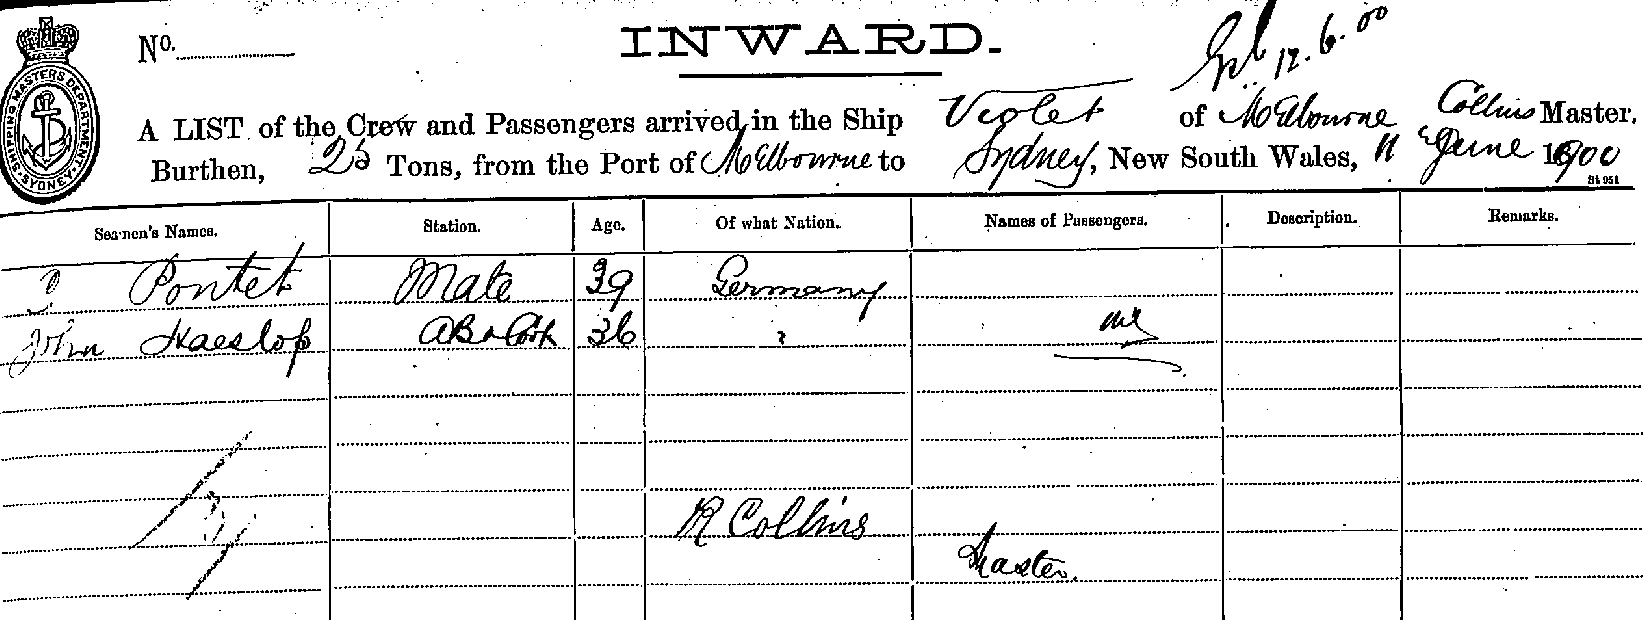 No.
INWARD.
12.6.00
SHIPPING MASTERS DEPARTMENT SYDNEY
A LIST of the Crew and Passengers arrived in the Ship Violet of Melbourne Collins Master,
Burthen, 25 Tons, from the Port of Melbourne to Sydney, New South Wales, 11 June 1900
Seamen's Names. Station. Age. Of what Nation. Names of Passengers. Description. Remarks.
Pontet Mate 39 Germany
John Haeslop AB & Cook 36 "
R Collins
Master.